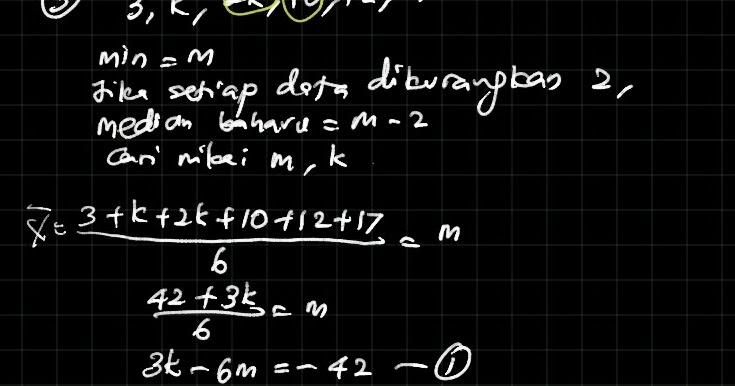 3, k, 2k, 10, 12,
min = m
Jika setiap data dikurangkan 2,
median baharu = m - 2
Cari nilai m, k
x̄ = (3 + k + 2k + 10 + 12 + 17)/6 = m
(42 + 3k)/6 = m
3k - 6m = - 42 — ①